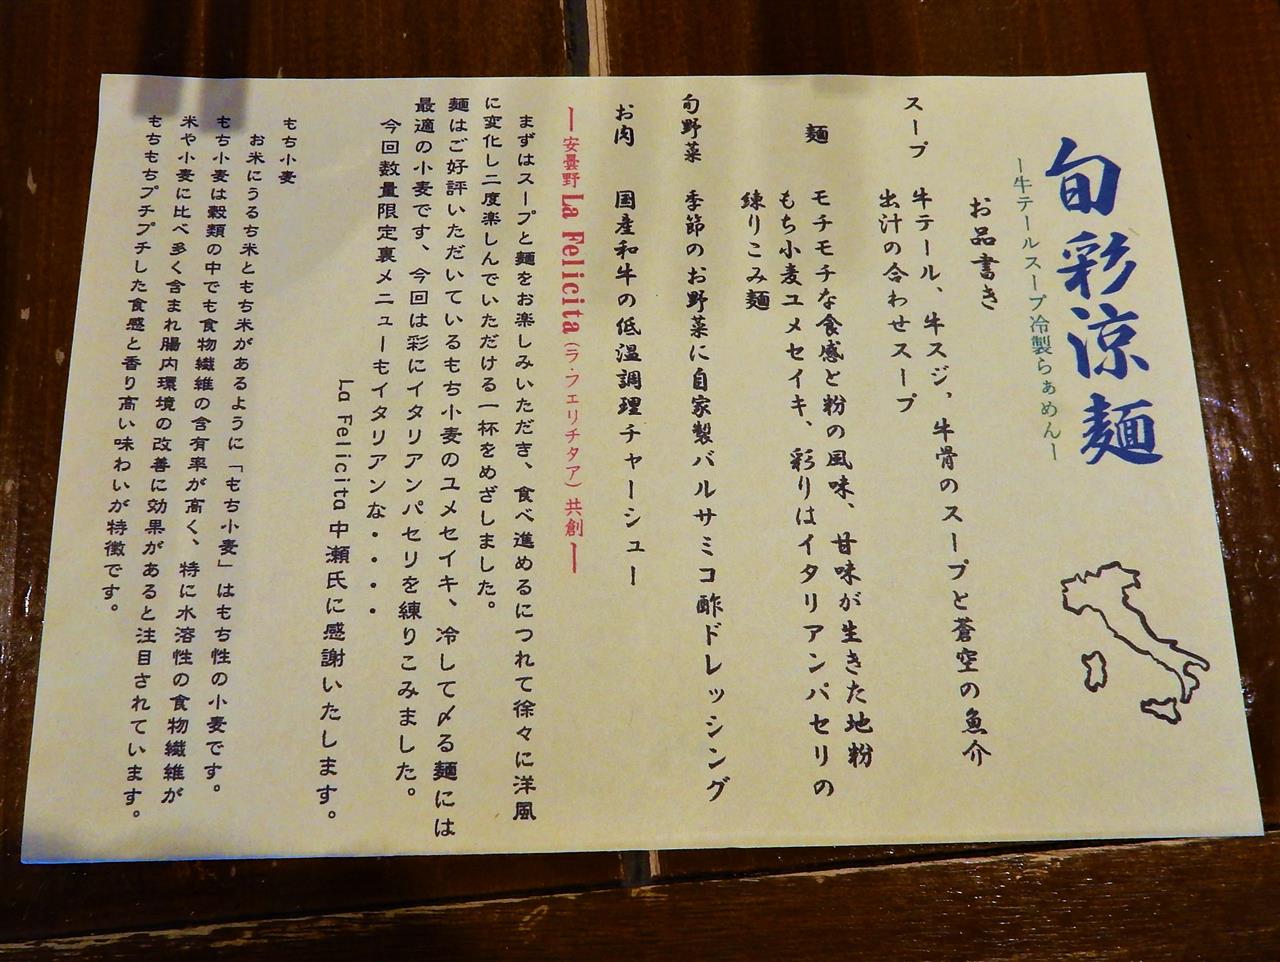 旬彩涼麺
ー牛テールスープ冷製らぁめんー
お品書き
スープ　牛テール、牛スジ、牛骨のスープと蒼空の魚介
出汁の合わせスープ
麺　モチモチな食感と粉の風味、甘味が生きた地粉
もち小麦ユメセイキ、彩りはイタリアンパセリの
練りこみ麺
旬野菜　季節のお野菜に自家製バルサミコ酢ドレッシング
お肉　国産和牛の低温調理チャーシュー
ー安曇野 La Felicita（ラ・フェリチタア）共創ー
まずはスープと麺をお楽しみいただき、食べ進めるにつれて徐々に洋風
に変化し二度楽しんでいただける一杯をめざしました。
麺はご好評いただいているもち小麦のユメセイキ、冷して〆る麺には
最適の小麦です、今回は彩にイタリアンパセリを練りこみました。
今回数量限定裏メニューもイタリアンな・・・・
La Felicita 中瀬氏に感謝いたします。
もち小麦
お米にうるち米ともち米があるように「もち小麦」はもち性の小麦です。
もち小麦は穀類の中でも食物繊維の含有率が高く、特に水溶性の食物繊維が
米や小麦に比べ多く含まれ腸内環境の改善に効果があると注目されています。
もちもちプチプチした食感と香り高い味わいが特徴です。